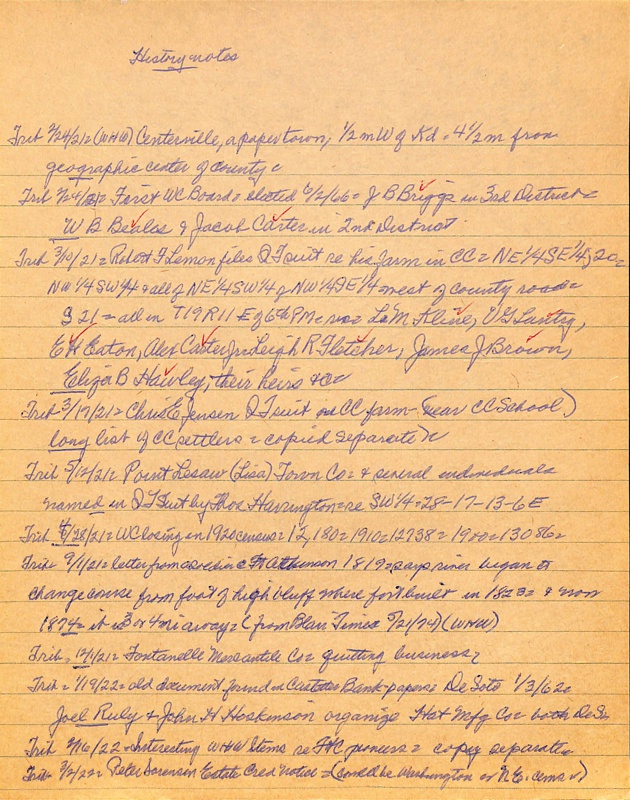 History notes
Trib 2/24/21= (WHW) Centerville, a paper town; 1/2 m W of Kd = 4 1/2 m from
geographic center of county =
Trib 2/24/21= First WC Board = elected 6/2/66= J B Briggs in 3rd District =
W B Beales & Jacob Carter in 2nd District
Trib 3/10/21= Robert F Lemon files QT suit re his farm in CC= NE 1/4 SE 1/4; 20=
NW 1/4 SW 1/4 & all of NE 1/4 SW 1/4 & NW 1/4 SE 1/4 west of county road=
S 21 = all in T19 R11 E of 6th PM = vs = L M Kline, V G Lantry,
E H Eaton, Alex Carter Jr, Leigh R Fletcher, James J Brown,
Eliza B Hawley, their heirs &c=
Trib 3/17/21= Chris E Jensen QT suit on CC farm- (near CC School)
long list of CC settlers = copied separately
Trib 5/12/21= Point Lesaw (Lisa) Town Co= & several individuals
named in QT Suit by Thos Harrington= re SW 1/4=28-17-13-6 E
Trib 4/28/21= WC losing in 1920 census= 12,180= 1910=12738= 1900=13086=
Trib= 9/1/21= letter from Ft Atkinson 1819= says river began to
change course from foot of high bluff where fort built in 1823= & now
1874= it is 3 or 4 mi away= (from Blair Times 5/21/74) (WHW)
Trib= 12/1/21= Fontanelle Mercantile Co= quitting business=
Trib= 1/19/22= old document found in Castetter Bank papers= De Soto 1/3/62=
Joel Ruly & John H Hoskinson organize Hat Mfg Co= both DeS
Trib 2/16/22= Interesting WHW Items re FtC pioneers= copy separate=
Trib= 3/2/22= Peter Sorensen Estate Cred Notice = (could be Washington or N.E. cems)